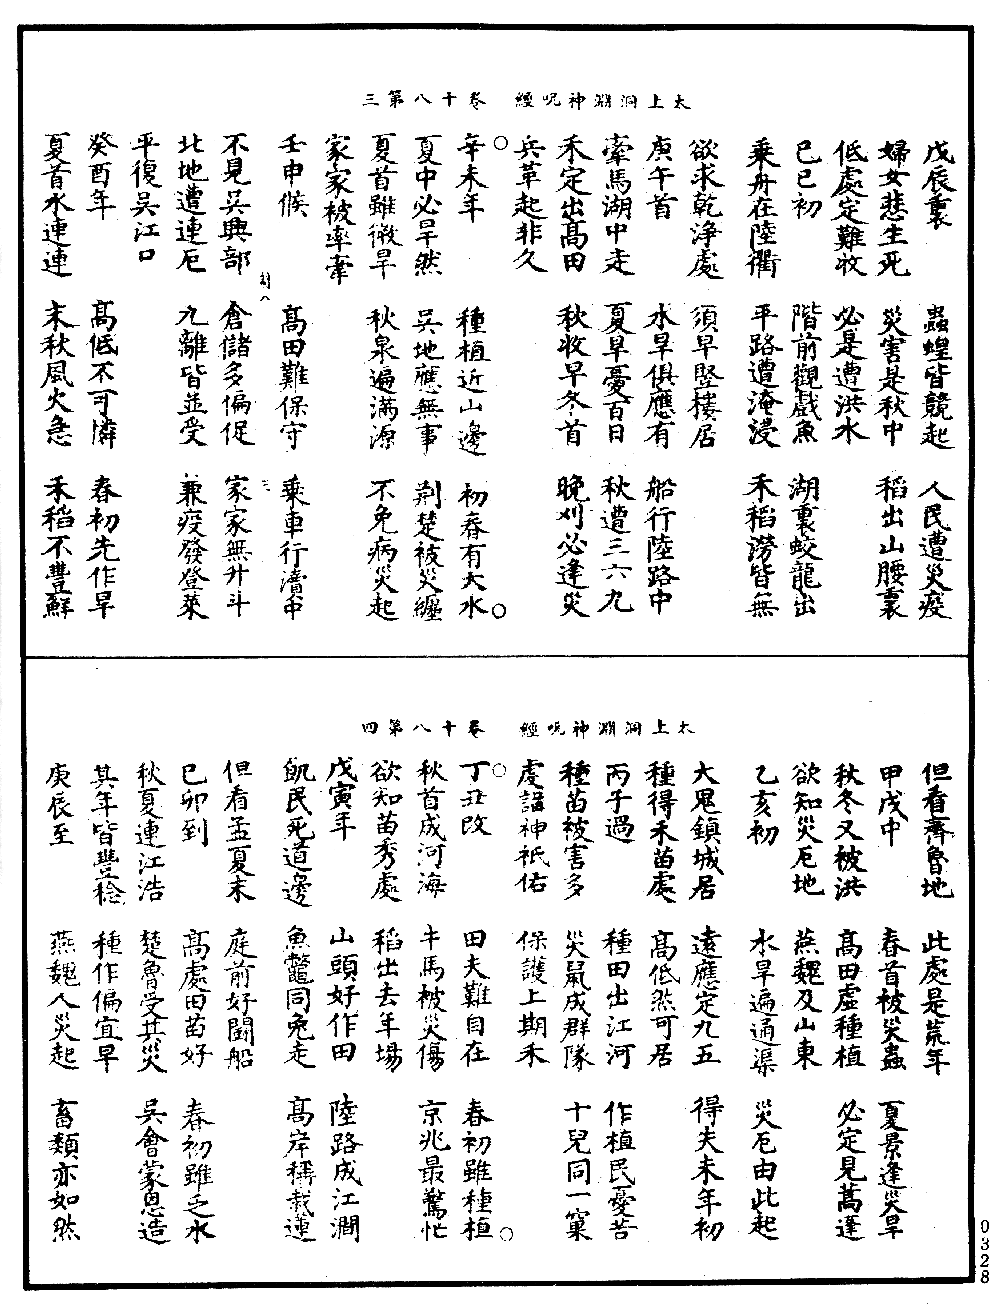 太上洞淵神呪經 卷十八第三
戊辰裏 蟲蝗皆競起 人民遭災疫
婦女悲生死 災害是秋中 稻出山腰裏
低處定難收 必是遭洪水
己巳初 階前觀戲魚 湖裏蛟龍出
乗舟在陸衢 平路遭淹浸 禾稻澇皆無
欲求乾浄處 須早竪樓居
庚午首 水旱俱應有 船行陸路中
牽馬湖中走 夏旱憂百日 秋遭三六九
禾定出髙田 秋收早冬首 晚刈必逢災
兵革起非久
辛未年 種植近山邊 初春有大水
夏中必旱然 吳地應無事 荆楚被災纏
夏首雖微旱 秋泉遍滿源 不免病災起
家家被率牽
壬申候 髙田難保守 乗車行瀆中
不見吳興部 倉儲多偏促 家家無升斗
北地遭連厄 九離皆並受 兼疫發登萊
平復吳江口
癸酉年 髙低不可憐 春初先作旱
夏首水連連 末秋風火急 禾稻不豐鮮
太上洞淵神呪經 卷十八第四
但看齊魯地 此處是荒年
甲戌中 春首被災蟲 夏景逢災旱
秋冬又被洪 髙田虛種植 必定見蒿蓬
欲知災厄地 燕魏及山東
乙亥初 水旱遍通渠 災厄由此起
大鬼鎮城居 遠應定九五 得失未年初
種得禾苗處 髙低然可居
丙子過 種田出江河 作植民憂苦
種苗被害多 災鼠成群隊 十兒同一窠
虔謳神祇佑 保護上期禾
丁丑改 田夫難自在 春初雖種植
秋首成河海 牛馬被災傷 京兆最驚忙
欲知苗秀處 稻出去年場
戊寅年 山頭好作田 陸路成江澗
飢民死道邊 魚鼈同兔走 髙岸稱栽蓮
但看孟夏末 庭前好鬪船
己卯到 髙處田苗好 春初雖乏水
秋夏連江浩 楚魯受其災 吳會蒙恩造
其年皆豐稔 種作偏宜早
庚辰至 燕魏人災起 畜類亦如然
0328